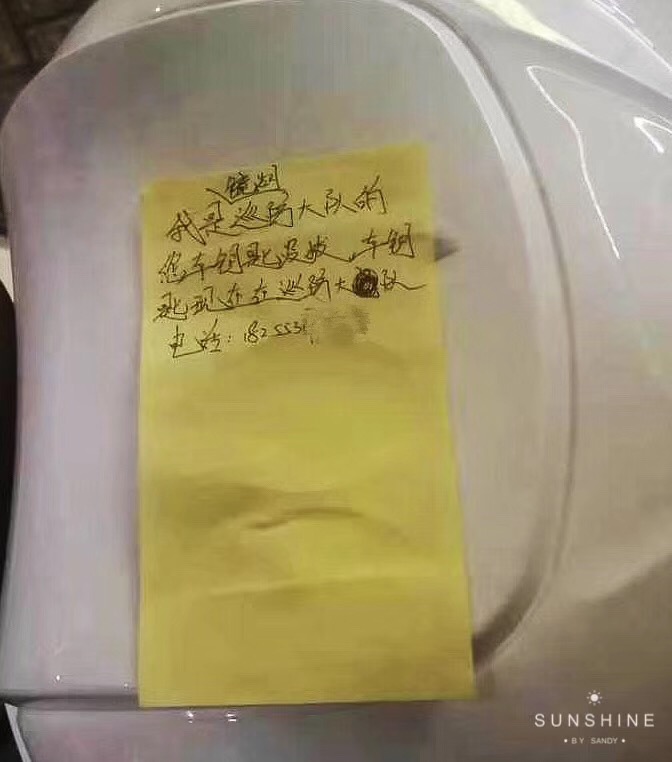 镜湖
我是巡防大队的
您车钥匙没拔，车钥
匙现在在巡防大队
电话：182553
SUNSHINE
• BY SANDY •